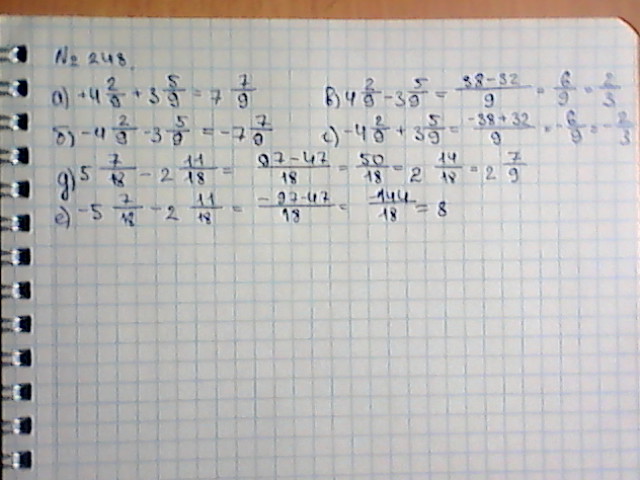 № 248.
а) +4 2/9 + 3 5/9 = 7 7/9 в) 4 2/9 - 3 5/9 = 38-32/9 = 6/9 = 2/3
б) -4 2/9 - 3 5/9 = -7 7/9 г) -4 2/9 + 3 5/9 = -38+32/9 = -6/9 = -2/3
д) 5 7/18 - 2 11/18 = 97-47/18 = 50/18 = 2 14/18 = 2 7/9
е) -5 7/18 - 2 11/18 = -97-47/18 = -144/18 = 8